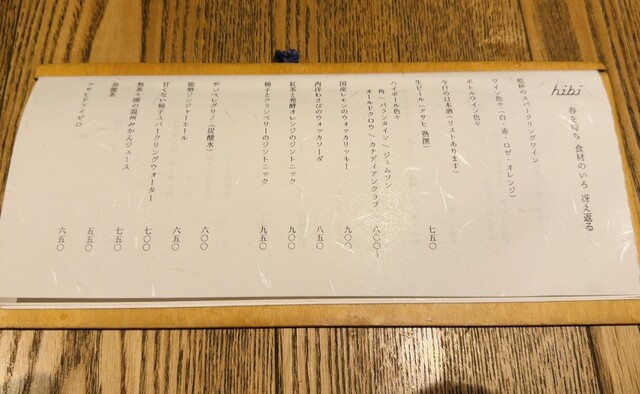 hibi
春を待ち 食材のいろ 冴え返る
乾杯のスパークリングワイン
ワイン色々(白・赤・ロゼ・オレンジ)
ボトルワイン色々
今日の日本酒(リストあります)
生ビール(アサヒ 熟撰) 七五〇
ハイボール色々 八〇〇〜
角/バランタイン/ジェムソン/
オールドクロウ/カナディアンクラブ
国産レモンのウォッカリッキー 九〇〇
西洋わさびのウォッカソーダ 八五〇
紅茶と発酵オレンジのジントニック 九〇〇
柚子とクランベリーのジントニック 九五〇
サンペレグリノ(炭酸水) 六〇〇
能勢ジンジャーエール 六五〇
甘くない柚子スパークリングウォーター 七〇〇
無茶々園の温州みかんジュース 七五〇
烏龍茶 五五〇
アサヒドライゼロ 六五〇